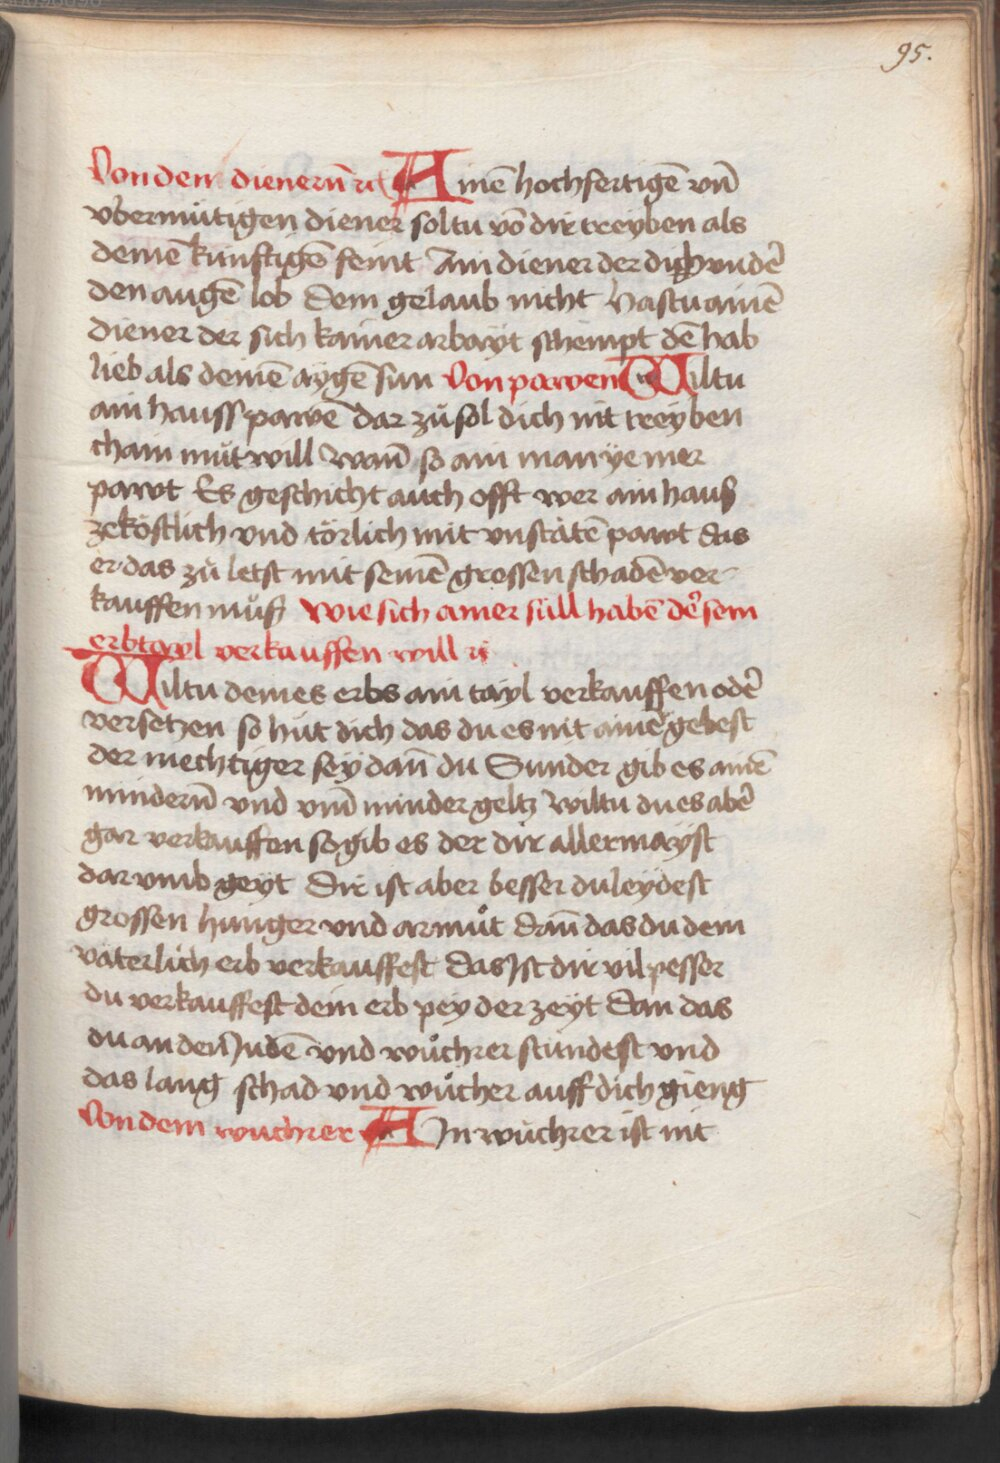 95.
Von dem dienerñ rc Ainē hochfertigē vñ
vbermütigen diener soltu vō dir treyben als
deinē künftigē feint Ain diener der dich vndē
den augē lob Dem gelaub nicht Hastu ainē
diener der sich kainer arbayt schempt dē hab
lieb als deinē aygē sun Von pawen Wiltu
ain hauss pawē dar zů sol dich nit treyben
chain můtwill Wañ so ain man ye mer
pawt Es geschicht auch offt wer ain haus
zeköstlich vnd törlich mit vnstätē pawt das
er das zů letst mit seinē grossen schadē ver
kauffen můß Wie sich ainer süll habē dē sein
erbtayl verkauffen will rc
Wiltu deines erbs ain tayl verkauffen odē
versetzen so hüt dich das du es nit ainē gebest
der mechtiger sey dañ du Sunder gib es ainē
minderñ vnd vm̃ minder geltz Wiltu du es abē
gar verkauffen so gib es der dir allermayst
dar vmb geyt Dir ist aber besser du leydest
grossen hunger vnd armůt dañ das du dein
väterlich erb verkauffest Das Ist dir vil pesser
du verkauffest dein erb pey der zeyt Dan das
du an den Judē vnd wůchrer stündest vnd
das lang schad vnd wůcher auff dich gieng
Von dem wuchrer AIn wůchrer ist nit